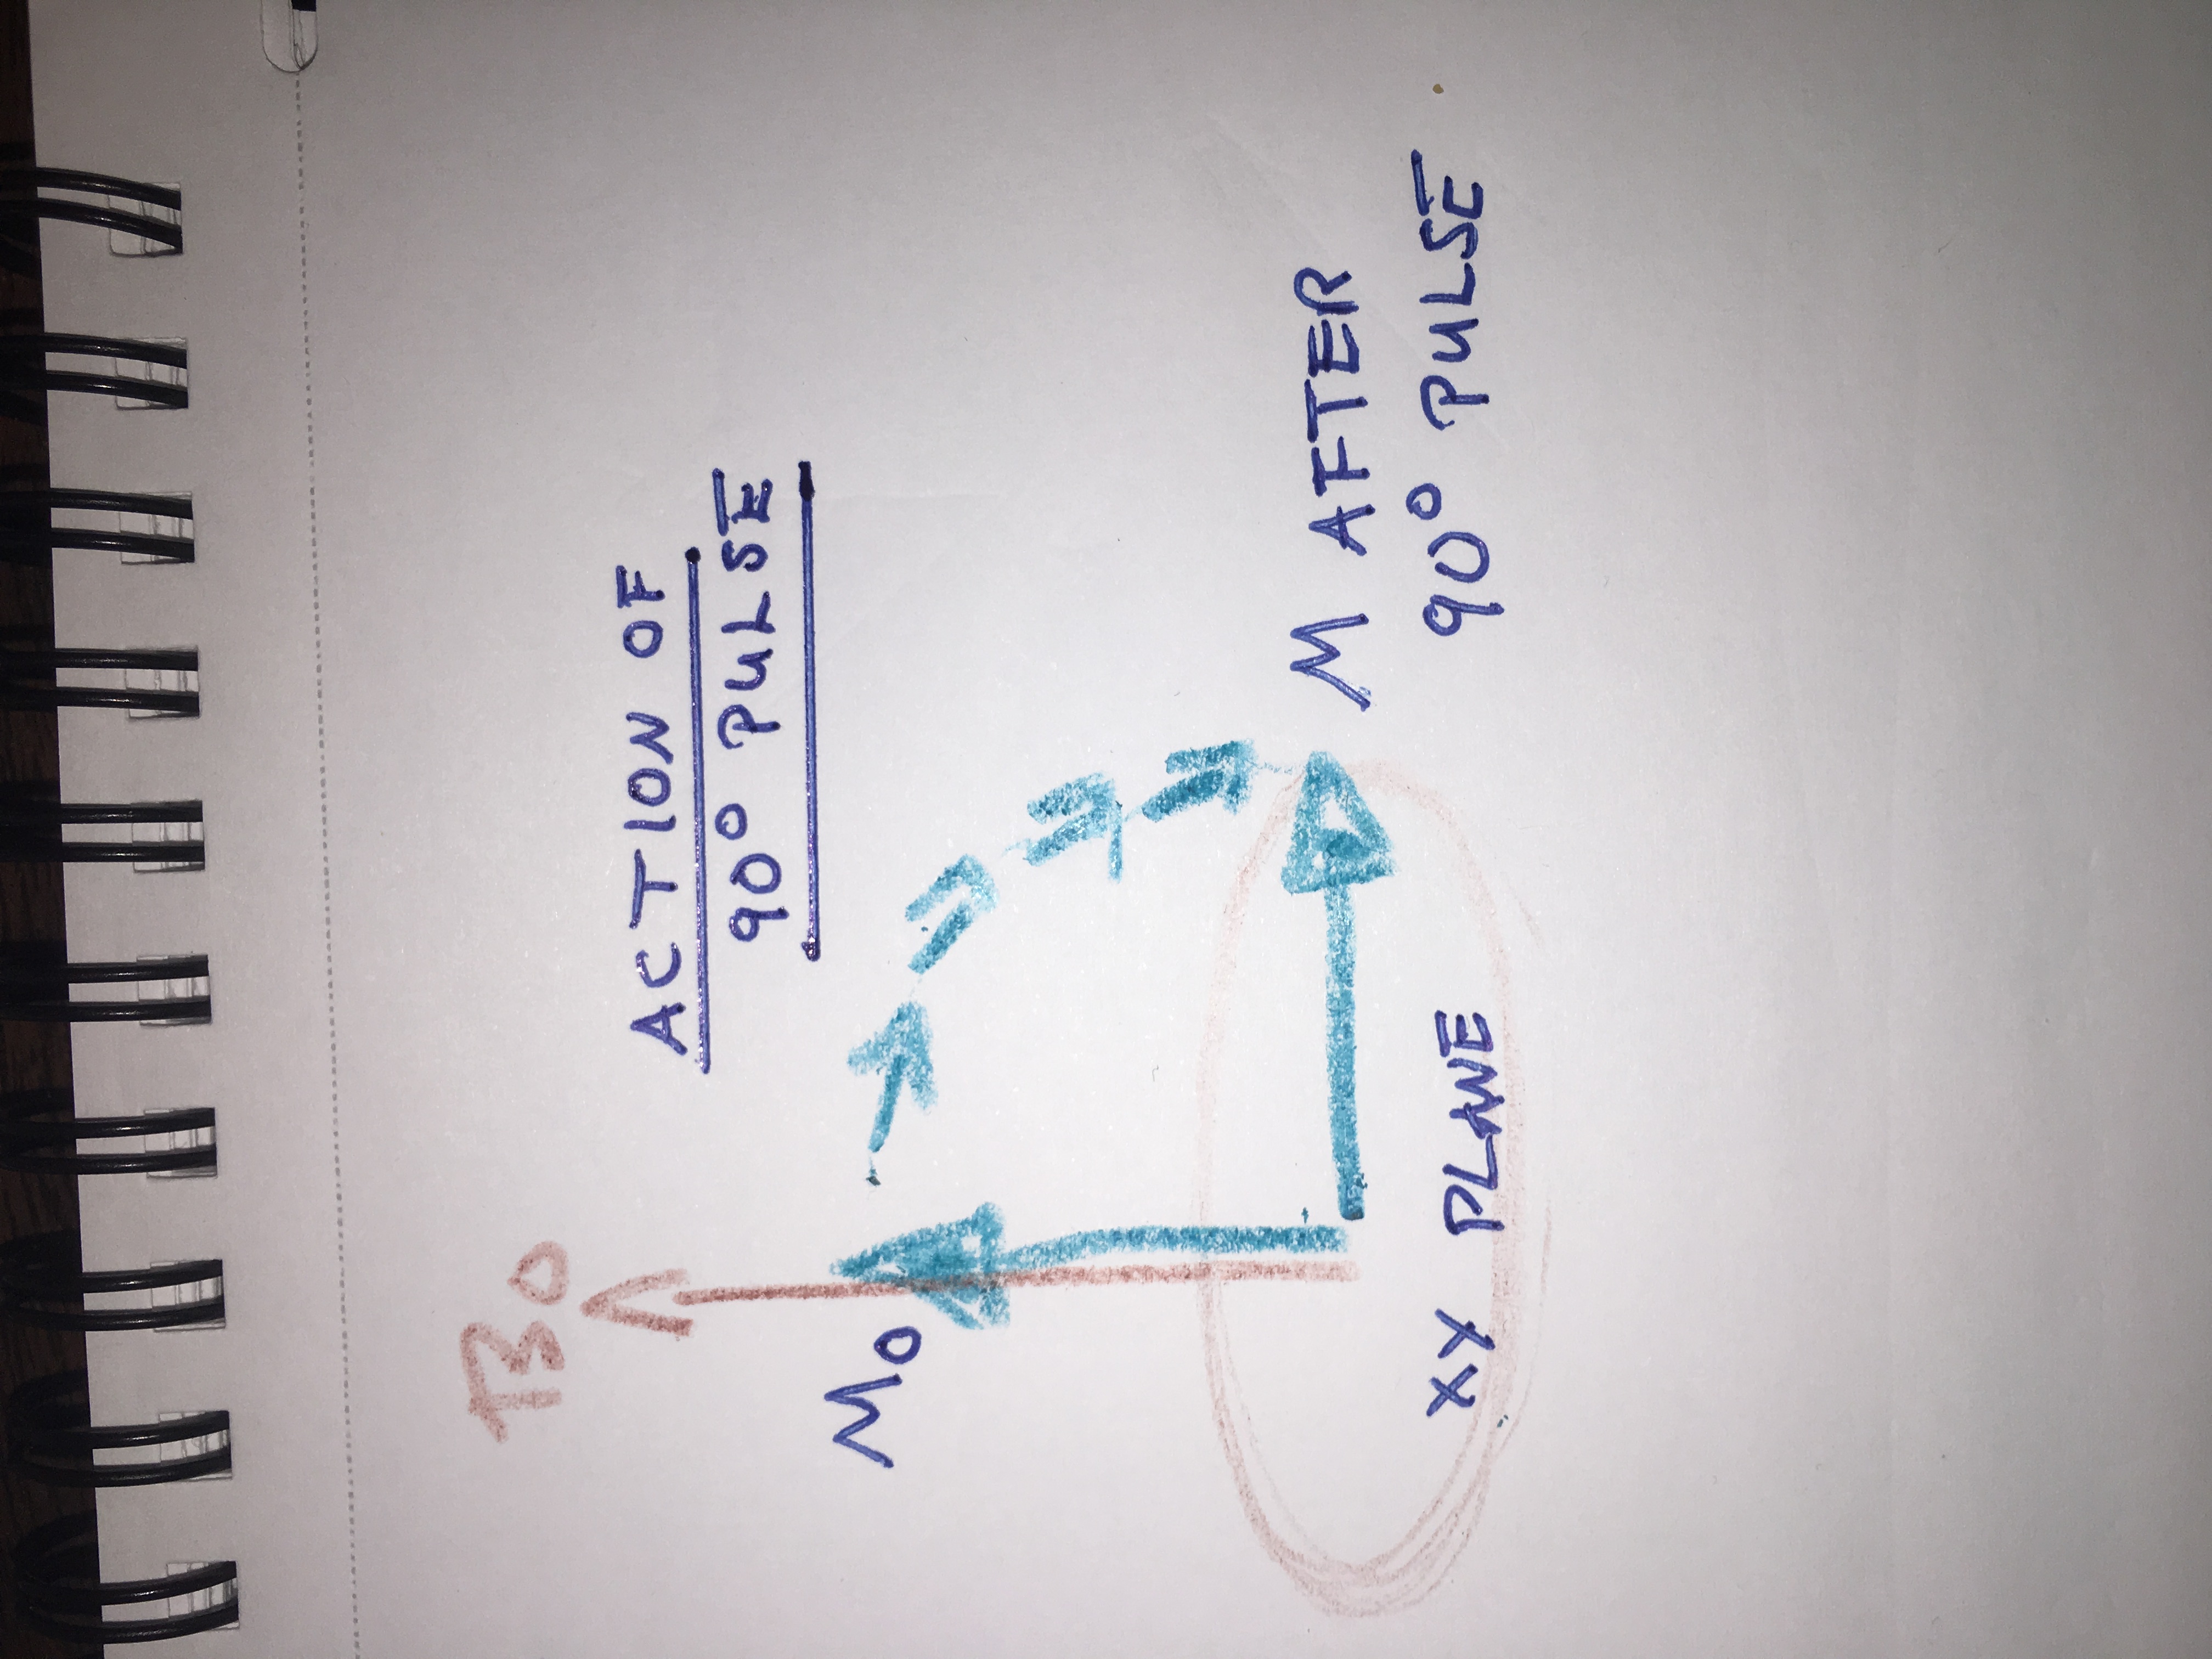 B0
ACTION OF
90° PULSE
M0
M AFTER
90° PULSE
XY PLANE